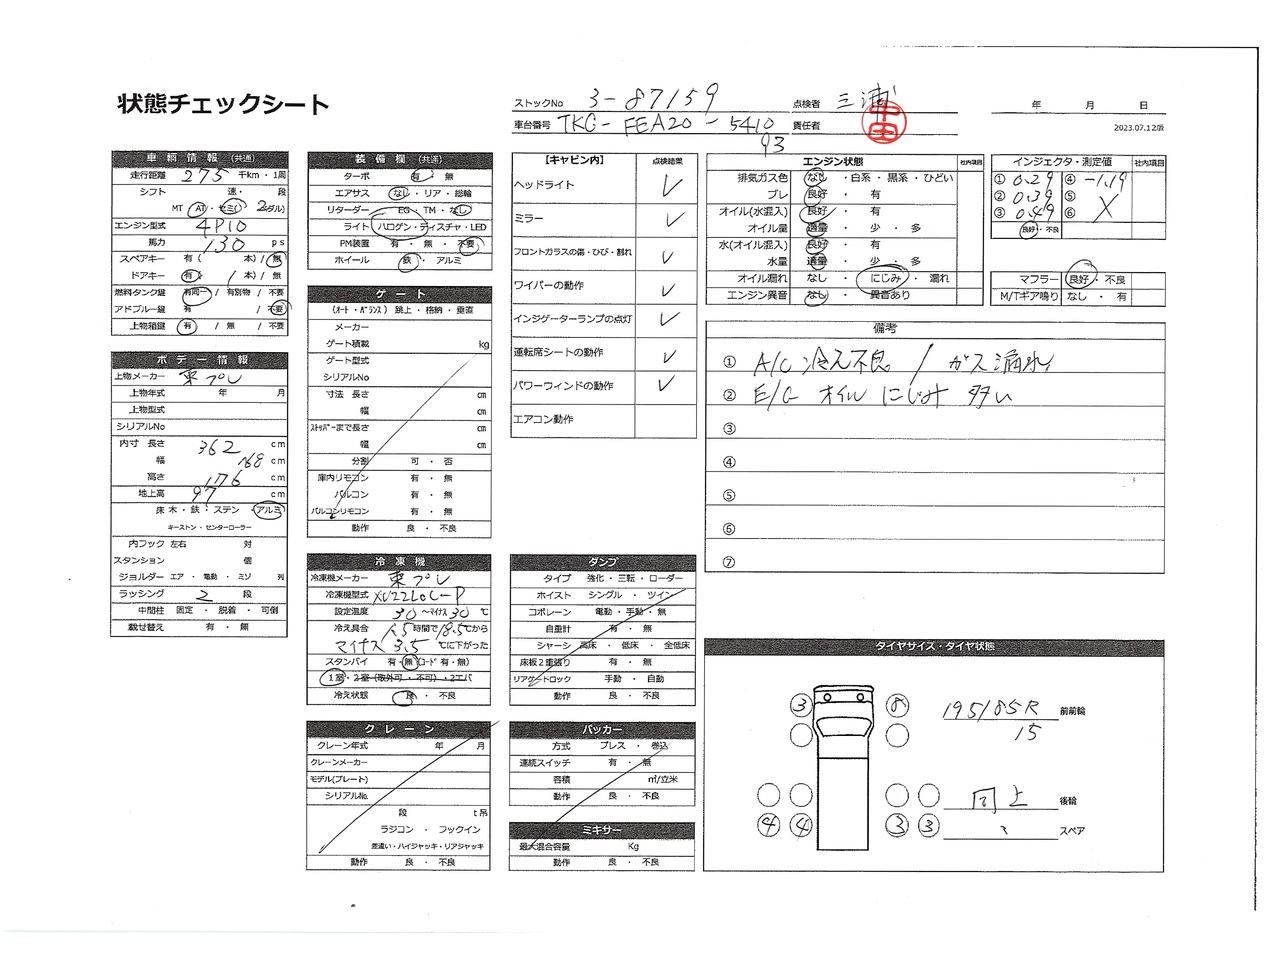 状態チェックシート
ストックNo 3-87159
点検者 三浦
年 月 日
車台番号 TKG-FEA20-541093
責任者
2023.07.12版
車輌情報 (共通)
走行距離 275 千km・1周
シフト 速・ 段
MT・AT・セミ( 2ダル)
エンジン型式 4P10
馬力 130 ps
スペアキー 有( 本) / 無
ドアキー 有( 1 本) / 無
燃料タンク鍵 有同一 / 有別物 / 不要
アドブルー鍵 有 / 不要
上物箱鍵 有 / 無 / 不要
ボデー情報
上物メーカー 東プレ
上物年式 年 月
上物型式
シリアルNo
内寸 長さ 362 cm
幅 168 cm
高さ 176 cm
地上高 97 cm
床 木・鉄・ステン・アルミ
キーストン・センターローラー
内フック 左右 対
スタンション 個
ジョルダー エア ・ 電動 ・ ミゾ 列
ラッシング 2 段
中間柱 固定 ・ 脱着 ・ 可倒
載せ替え 有 ・ 無
装備欄 (共通)
ターボ 有 ・ 無
エアサス なし・リア・総輪
リターダー EG・TM・なし
ライト ハロゲン・ディスチャ・LED
PM装置 有 ・ 無 ・ 不要
ホイール 鉄 ・ アルミ
ゲート
(オート・バランス) 跳上・格納・垂直
メーカー
ゲート積載 kg
ゲート型式
シリアルNo
寸法 長さ cm
幅 cm
ストッパーまで長さ cm
幅 cm
分割 可 ・ 否
庫内リモコン 有 ・ 無
パルコン 有 ・ 無
パルコンリモコン 有 ・ 無
動作 良 ・ 不良
冷凍機
冷凍機メーカー 東プレ
冷凍機型式 XV22LOC-P
設定温度 30 ~マイナス 30 ℃
冷え具合 1.5時間で18.5℃から
マイナス 3.5 ℃に下がった
スタンバイ 有・無 (コード 有・無)
1室・2室(取外可・不可)・2エバ
冷え状態 良 ・ 不良
クレーン
クレーン年式 年 月
クレーンメーカー
モデル(プレート)
シリアルNo.
段 t吊
ラジコン ・ フックイン
差違い・ハイジャッキ・リアジャッキ
動作 良 ・ 不良
【キャビン内】 点検結果
ヘッドライト ✓
ミラー ✓
フロントガラスの傷・ひび・割れ ✓
ワイパーの動作 ✓
インジゲーターランプの点灯 ✓
運転席シートの動作 ✓
パワーウィンドの動作 ✓
エアコン動作
ダンプ
タイプ 強化・三転・ローダー
ホイスト シングル ・ ツイン
コボレーン 電動・手動・無
自重計 有 ・ 無
シャーシ 高床 ・ 低床 ・ 全低床
床板2重張り 有 ・ 無
リアゲートロック 手動 ・ 自動
動作 良 ・ 不良
パッカー
方式 プレス ・ 巻込
連続スイッチ 有 ・ 無
容積 ㎥/立米
動作 良 ・ 不良
ミキサー
最大混合容量 Kg
動作 良 ・ 不良
エンジン状態 社内項目
排気ガス色 なし ・白系・黒系・ひどい
ブレ 良好 ・ 有
オイル(水混入) 良好 ・ 有
オイル量 適量 ・ 少 ・ 多
水(オイル混入) 良好 ・ 有
水量 適量 ・ 少 ・ 多
オイル漏れ なし ・ にじみ ・ 漏れ
エンジン異音 なし ・ 異音あり
インジェクタ・測定値 社内項目
① 0.29 ④ -1.19
② 0.39 ⑤
③ 0.49 ⑥
良好・不良
マフラー 良好 ・ 不良
M/Tギア鳴り なし ・ 有
備考
① A/C 冷え不良 / ガス漏れ
② E/G オイル にじみ 多い
③
④
⑤
⑥
⑦
タイヤサイズ・タイヤ状態
3 8 195/85R 前前輪
15
同上 後輪
4 4 3 3 スペア